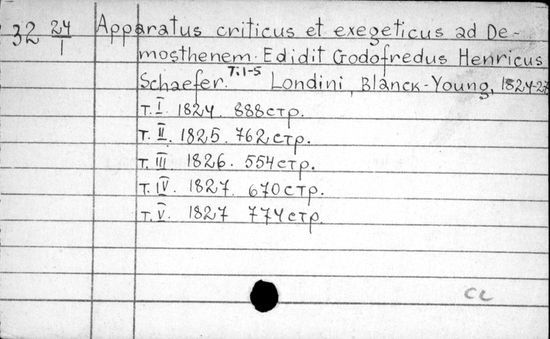 32 24/1 Apparatus criticus et exegeticus ad De-
mosthenem. Edidit Godofredus Henricus
Schaefer. T.1-5 Londini, Blanck-Young, 1824-27
т. I. 1824. 888стр.
т. II. 1825. 762стр.
т. III 1826. 554стр.
т. IV. 1827. 670стр.
т. V. 1827 774стр.